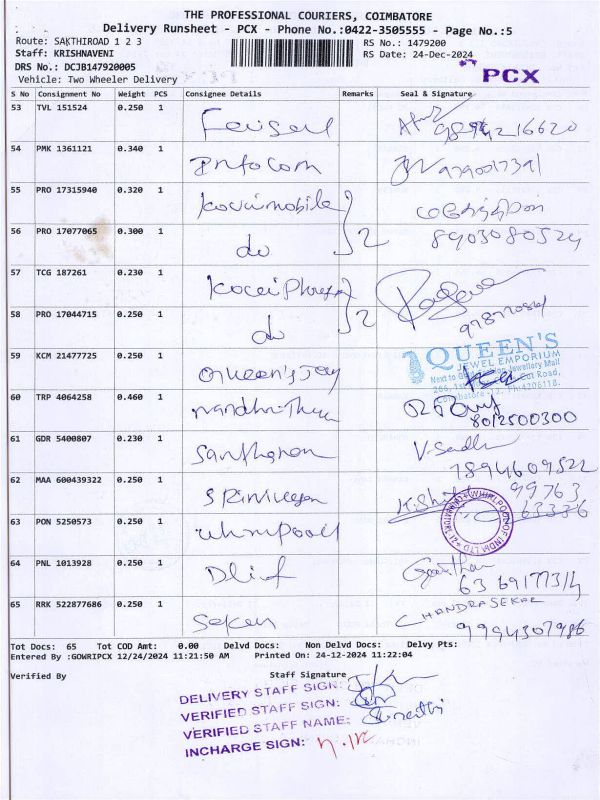 THE PROFESSIONAL COURIERS, COIMBATORE
Delivery Runsheet - PCX - Phone No.:0422-3505555 - Page No.:5
Route: SAKTHIROAD 1 2 3
RS No.: 1479200
Staff: KRISHNAVENI
RS Date: 24-Dec-2024
DRS No.: DCJB147920005
PCX
Vehicle: Two Wheeler Delivery
S No Consignment No Weight PCS Consignee Details Remarks Seal & Signature
53 TVL 151524 0.250 1
9894216620
54 PMK 1361121 0.340 1 Infocom
9790017391
55 PRO 17315940 0.320 1 kovaimobile
56 PRO 17077065 0.300 1 do 2 8903080524
57 TCG 187261 0.230 1
58 PRO 17044715 0.250 1 do 2
59 KCM 21477725 0.250 1 Queen's Joy
QUEEN'S
JEWEL EMPORIUM
60 TRP 4064258 0.460 1
8012500300
61 GDR 5400807 0.230 1
7894609522
62 MAA 600439322 0.250 1 Srinivasan
99763
63336
63 PON 5250573 0.250 1 whirlpool
WHIRLPOOL OF INDIA LTD
64 PNL 1013928 0.250 1
65 RRK 522877686 0.250 1 Sekar CHANDRASEKAR
9994307986
Tot Docs: 65 Tot COD Amt: 0.00 Delvd Docs: Non Delvd Docs: Delvy Pts:
Entered By :GOWRIPCX 12/24/2024 11:21:50 AM Printed On: 24-12-2024 11:22:04
Verified By Staff Signature
DELIVERY STAFF SIGN:
VERIFIED STAFF SIGN:
VERIFIED STAFF NAME:
INCHARGE SIGN: